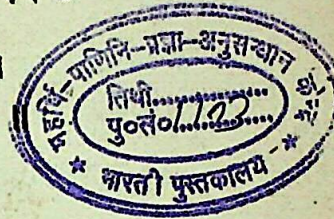 महर्षि-पाणिनि-प्रज्ञा-अनुसन्धान
तिथी..................
पु०सं०
* भारती पुस्तकालय *